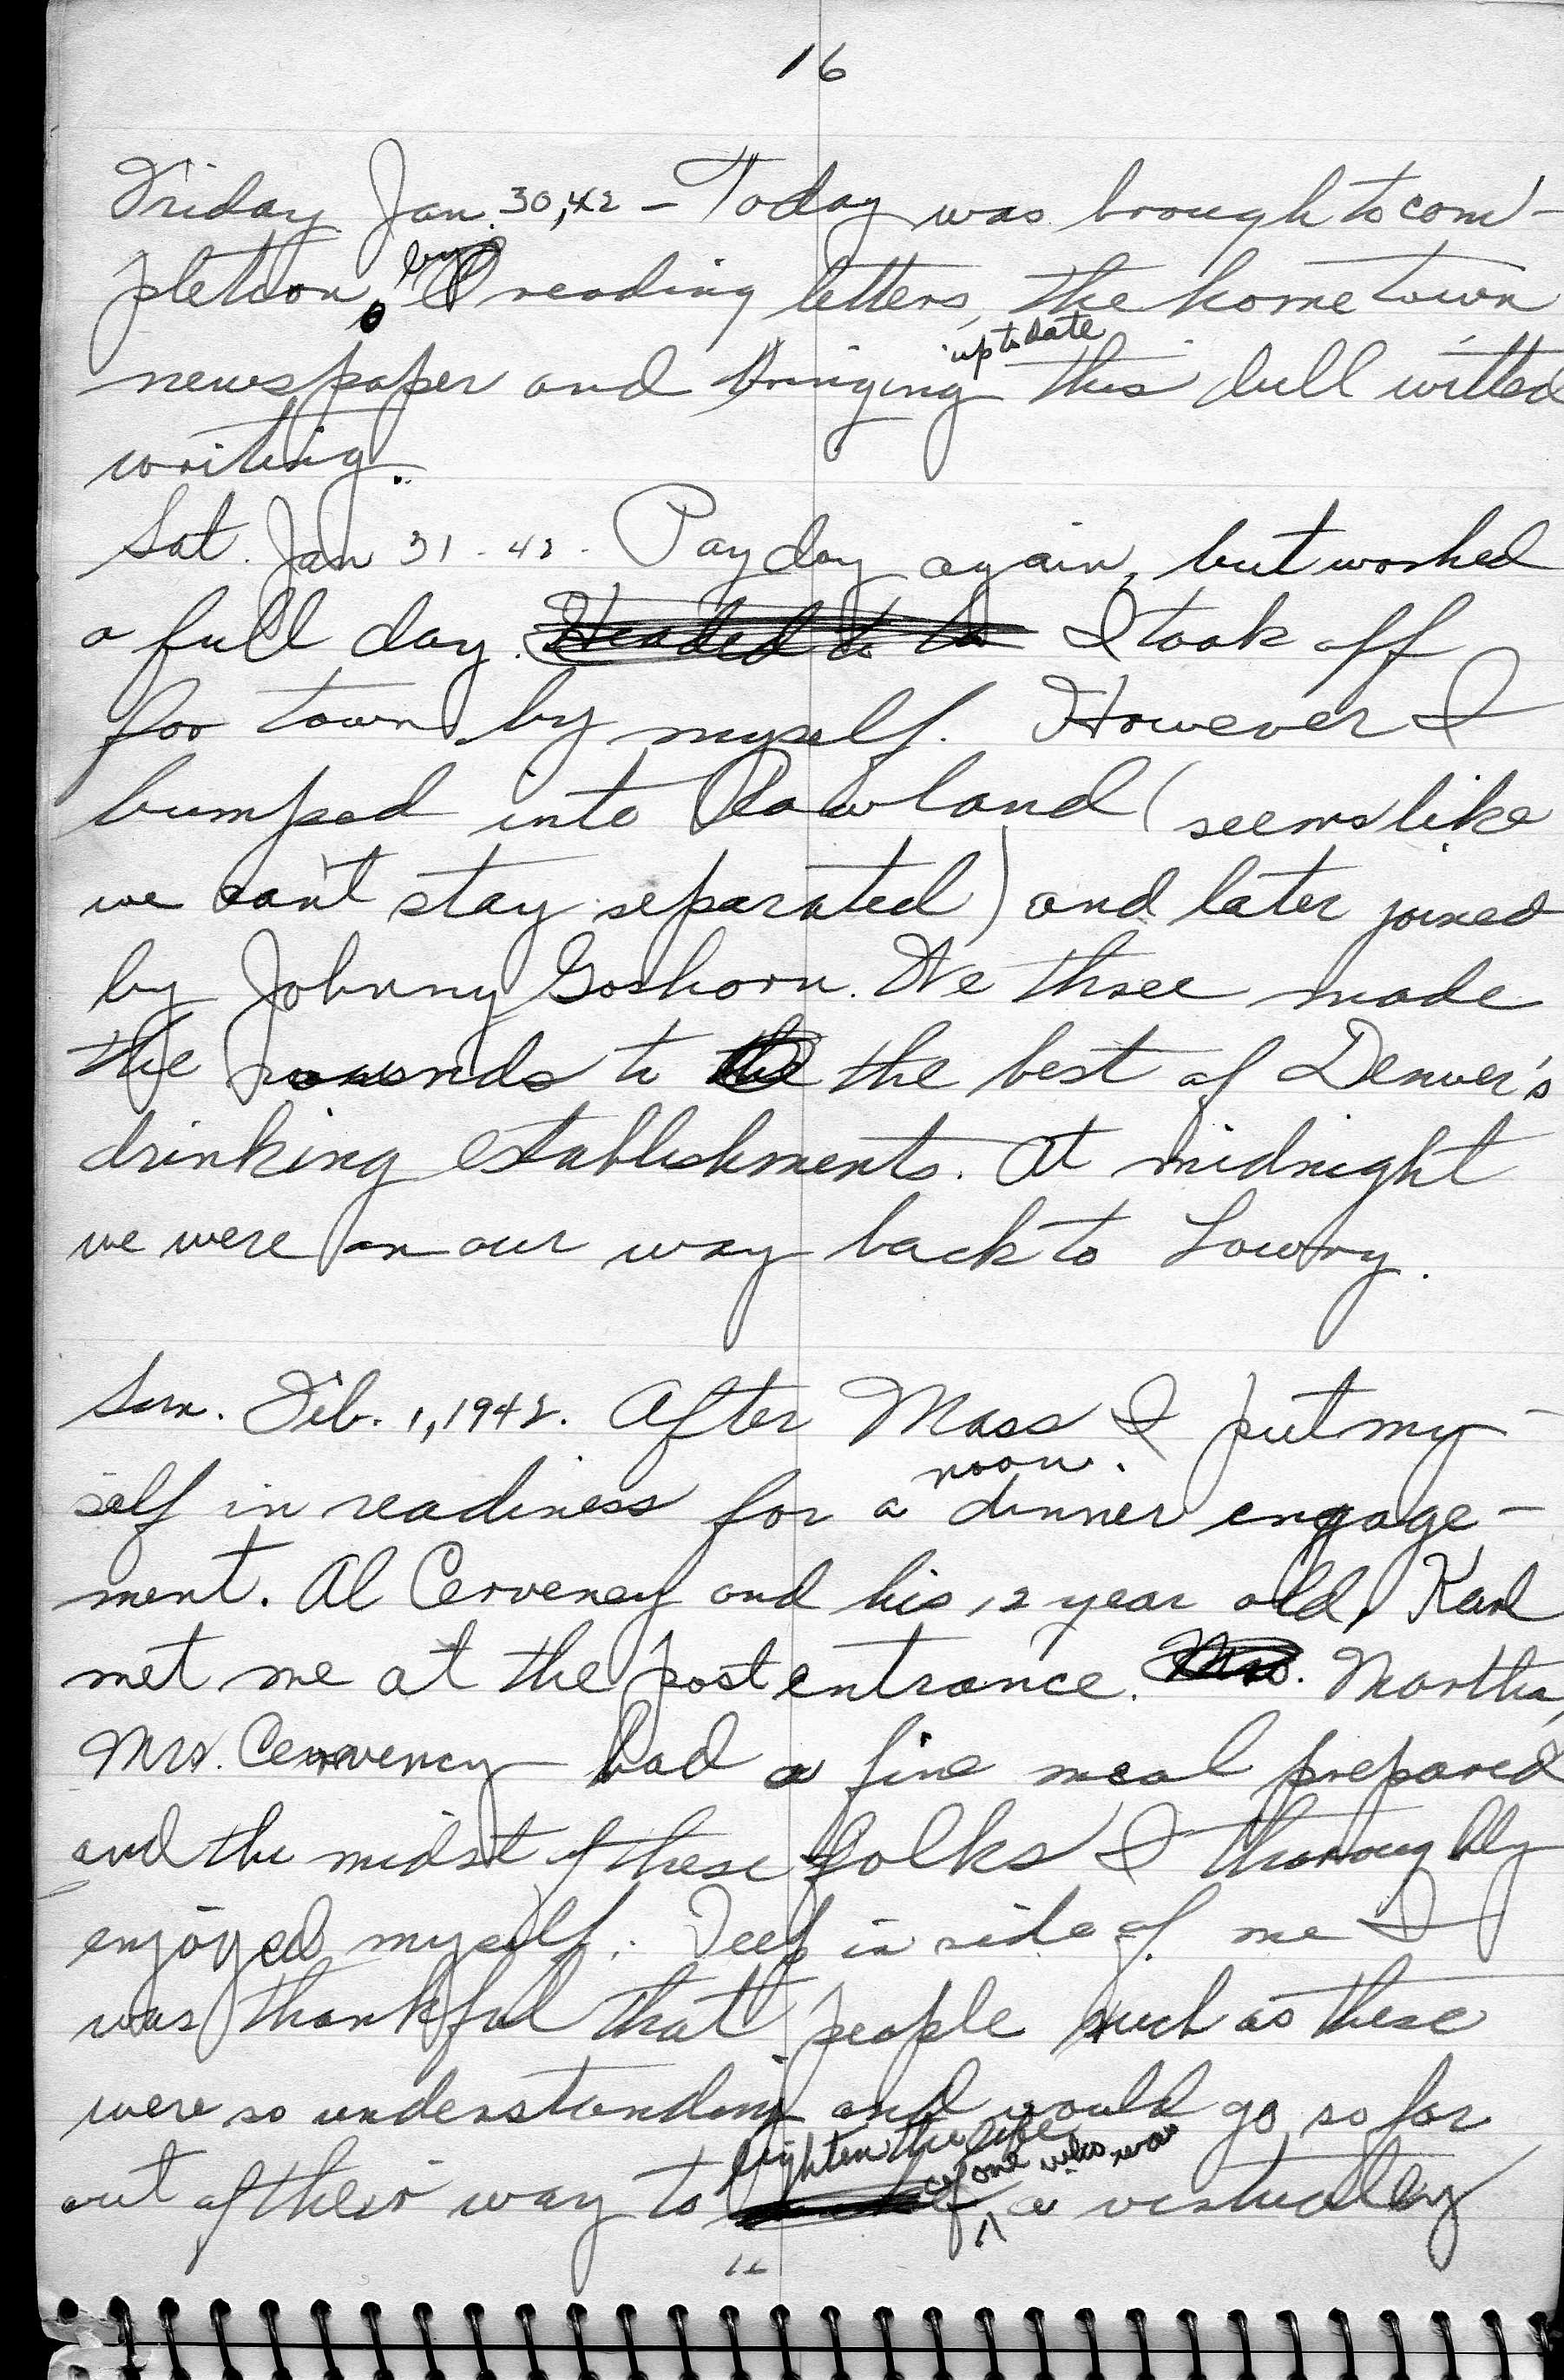 16
Friday Jan. 30, 42 - Today was brough to com-
pletion, by reading letters, the home town
newspaper and bringing up to date this dull witted
writing.
Sat. Jan 31 - 42 - Pay day again, but worked
a full day. Headed to I took off
for town by myself. However I
bumped into Rowland (seems like
we can't stay separated) and later joined
by Johnny Goshorn. We three made
the rounds to the the best of Denver's
drinking establishments. At midnight
we were on our way back to Lowry.
Sun. Feb. 1, 1942. After Mass I put my-
self in readiness for a noon dinner engage-
ment. Al Cerveney and his 12 year old, Karl
met me at the post entrance. Mrs. Martha,
Mrs. Cerveney had a fine meal prepared
and the midst of these folks I thoroughly
enjoyed myself. Deep in side of me I
was thankful that people such as these
were so understanding and would go so far
out of their way to brighten the life of one who was a virtualley